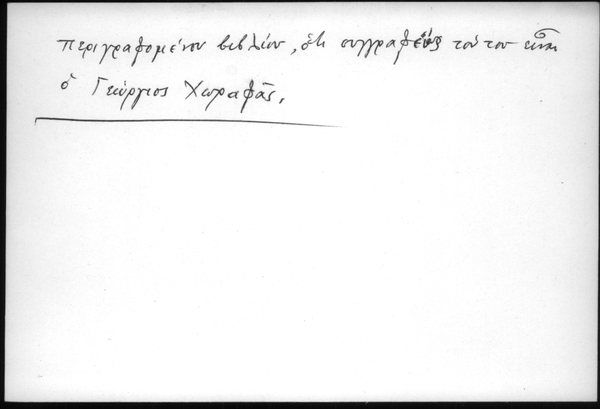 περιγραφομένου βιβλίου, ὅτι συγγραφεύς τούτου εἶναι
ὁ Γεώργιος Χωραφᾶς.